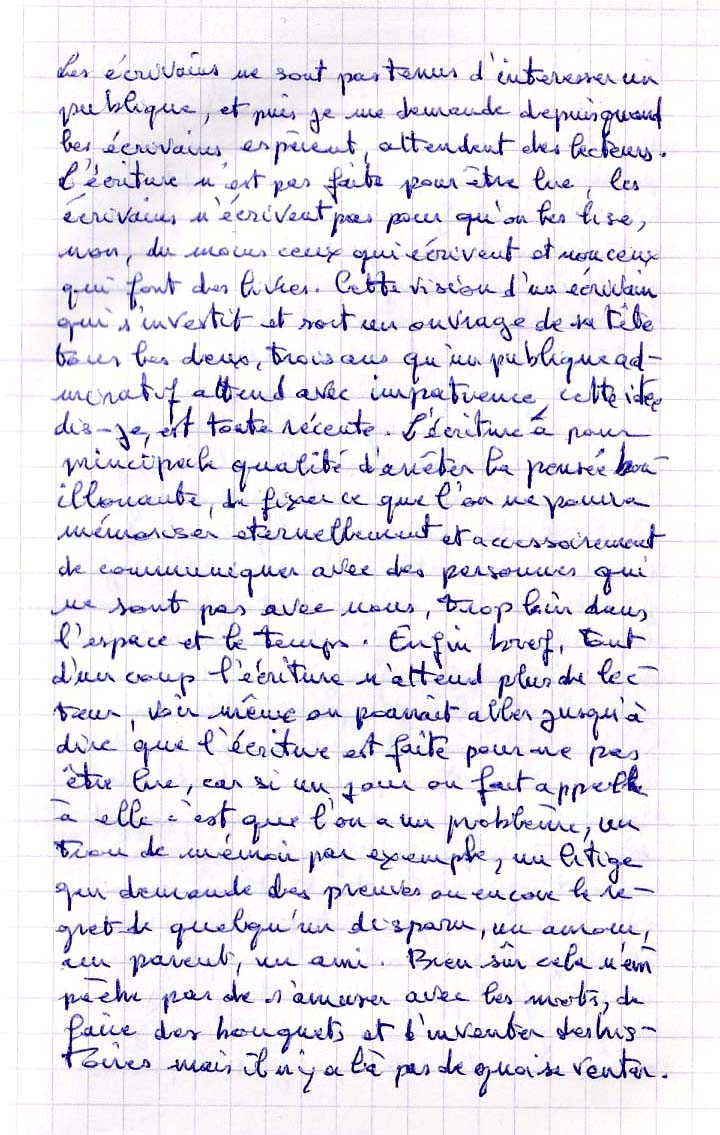 Les écrivains ne sont pas tenus d'interesser un
publique, et puis je me demande depuis quand
les écrivains espèrent, attendent des lecteurs.
L'écriture n'est pas faite pour être lue, les
écrivains n'écrivent pas pour qu'on les lise,
non, du moins ceux qui écrivent et non ceux
qui font des livres. Cette vision d'un écrivain
qui s'investit et sort un ouvrage de sa tête
tous les deux, trois ans qu'un publique ad-
miratif attend avec impatience, cette idée
dis-je, est toute récente. L'écriture à pour
principale qualité d'arrêter la pensée bou-
illonante, de fixer ce que l'on ne pourra
mémoriser eternellement et accessoirement
de communiquer avec des personnes qui
ne sont pas avec nous, trop loin dans
l'espace et le temps. Enfin bref, tout
d'un coup l'écriture n'attend plus de lec-
teur, voir même on pourrait aller jusqu'à
dire que l'écriture est faite pour ne pas
être lue, car si un jour on fait appelle
à elle c'est que l'on a un problème, un
trou de mémoire par exemple, un litige
qui demande des preuves ou encore le re-
gret de quelqu'un disparu, un amour,
un parent, un ami. Bien sûr cela n'em
pêche pas de s'amuser avec les mots, de
faire des bouquets et d'inventer des his-
toires mais il n'y a là pas de quoi se venter.